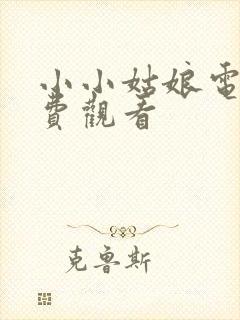 小小姑娘電
費觀看
克魯斯